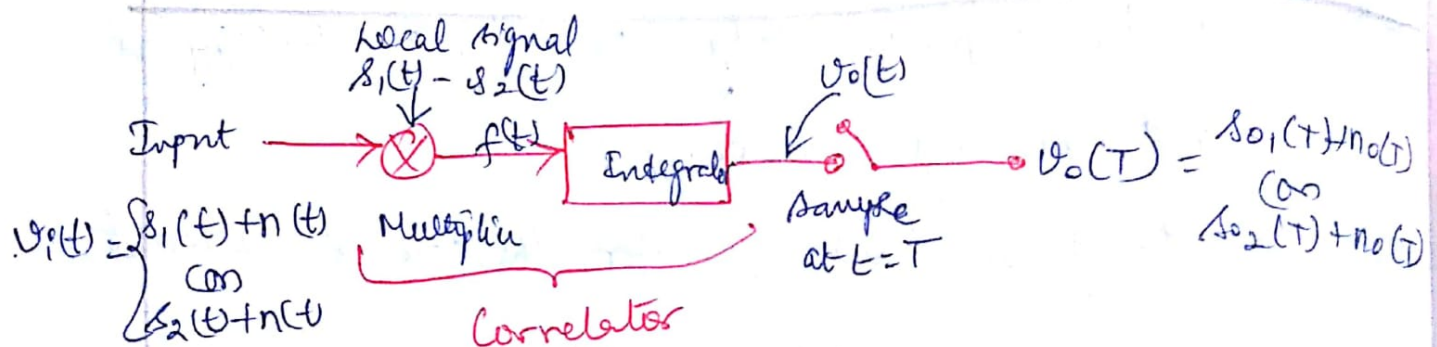 Local signal
s₁(t) - s₂(t)
v₀(t)
Input
f(t)
Integrator
v₀(T) = s₀₁(T)+n₀(T)
(or)
s₀₂(T)+n₀(T)
vᵢ(t) = { s₁(t)+n(t)
(or)
s₂(t)+n(t)
Multiplier
Sample
at t=T
Correlator